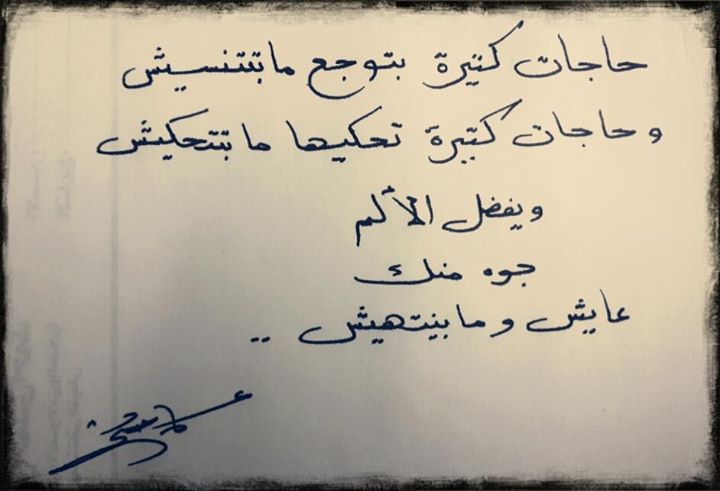 حاجات كتيرة بتوجع مابتتنسيش
وحاجات كتيرة تحكيها مابتتحكيش
ويفضل الألم
جوه منك
عايش ومابينتهيش ..